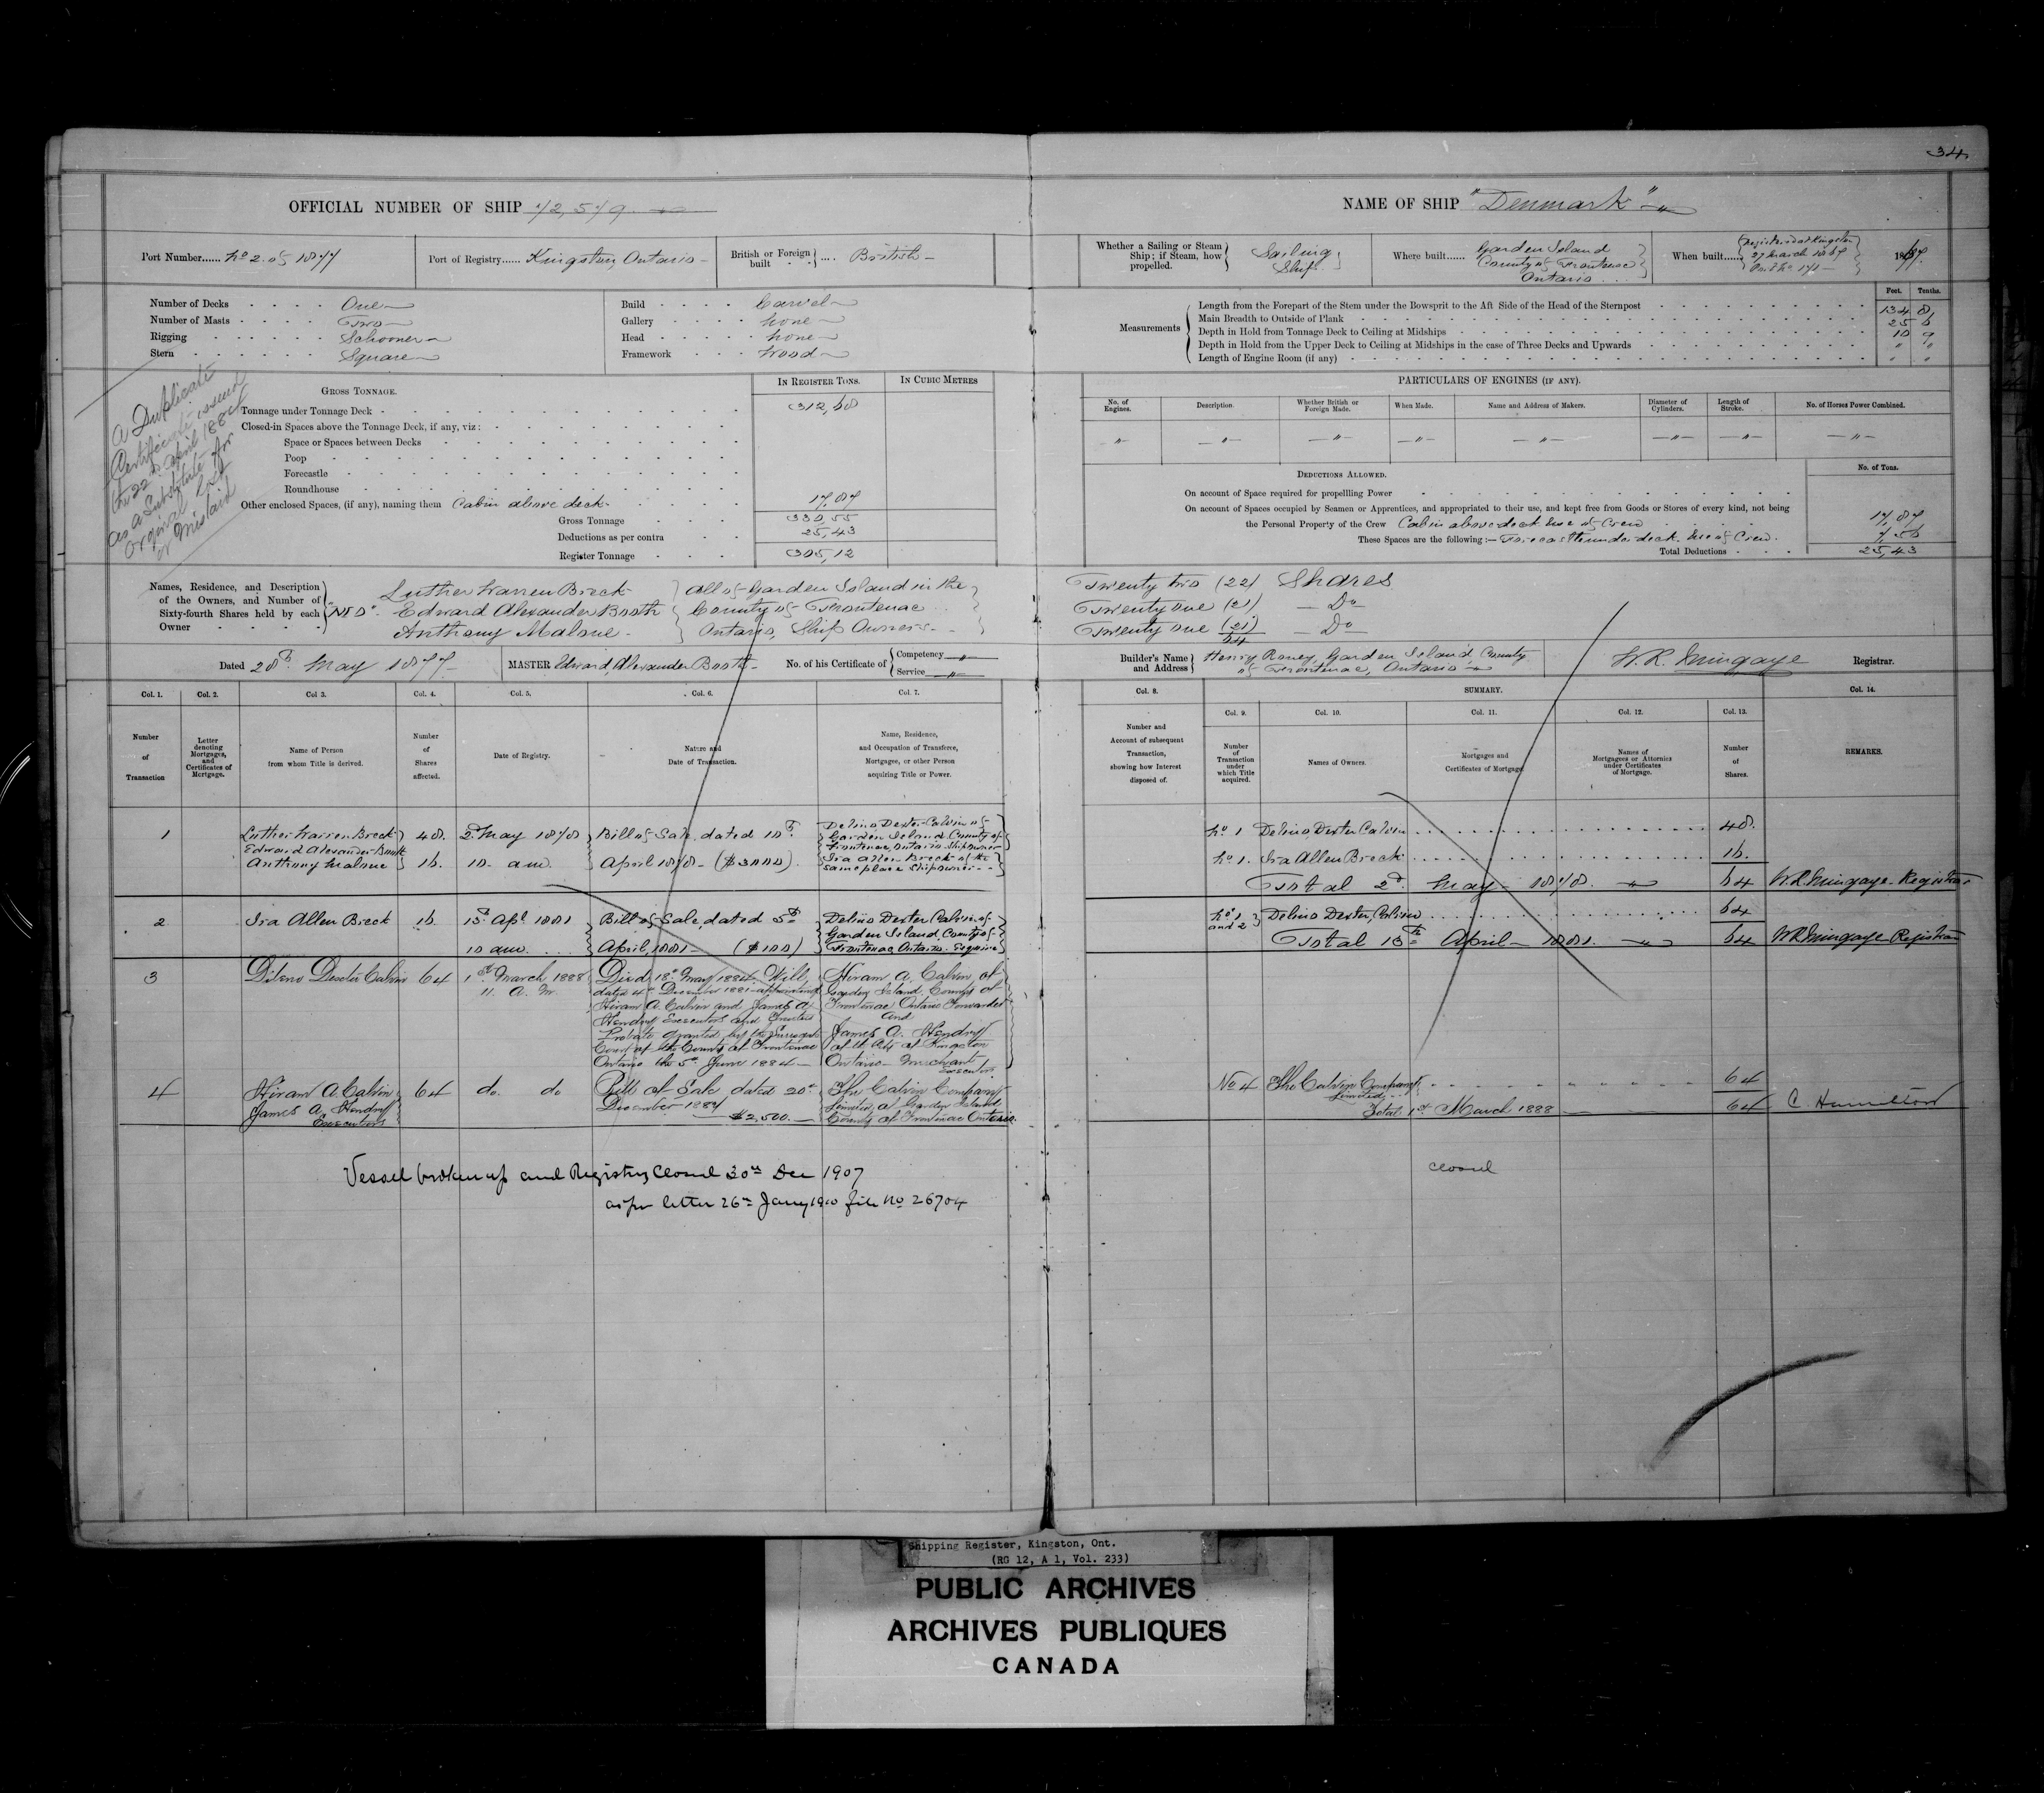 34
OFFICIAL NUMBER OF SHIP 72,579
NAME OF SHIP "Denmark"
Port Number...... No 2 of 1877
Port of Registry...... Kingston, Ontario
British or Foreign built .... British
Whether a Sailing or Steam Ship; if Steam, how propelled. Sailing Ship
Where built...... Garden Island County of Frontenac Ontario
When built...... Registered at Kingston 27 March 1867 1867
Number of Decks One
Number of Masts Two
Rigging Schooner
Stern Square
Build Carvel
Gallery None
Head None
Framework Wood
Measurements
Feet. Tenths.
Length from the Forepart of the Stem under the Bowsprit to the Aft Side of the Head of the Sternpost 134 8
Main Breadth to Outside of Plank 25 6
Depth in Hold from Tonnage Deck to Ceiling at Midships 10 9
Depth in Hold from the Upper Deck to Ceiling at Midships in the case of Three Decks and Upwards " "
Length of Engine Room (if any) " "
A Duplicate
Certificate issued
the 22nd April 1884
as a Substitute for
Original lost
or mislaid
GROSS TONNAGE.
IN REGISTER TONS.
IN CUBIC METRES
Tonnage under Tonnage Deck 312,68
Closed-in Spaces above the Tonnage Deck, if any, viz:
Space or Spaces between Decks
Poop
Forecastle
Roundhouse
Other enclosed Spaces, (if any), naming them Cabin above deck 17.87
Gross Tonnage 330,55
Deductions as per contra 25,43
Register Tonnage 305,12
PARTICULARS OF ENGINES (IF ANY).
No. of Engines.
Description.
Whether British or Foreign Made.
When Made.
Name and Address of Makers.
Diameter of Cylinders.
Length of Stroke.
No. of Horses Power Combined.
DEDUCTIONS ALLOWED.
No. of Tons.
On account of Space required for propellling Power
On account of Spaces occupied by Seamen or Apprentices, and appropriated to their use, and kept free from Goods or Stores of every kind, not being
the Personal Property of the Crew Cabin above deck use of Crew 17,87
These Spaces are the following:— Forecastle under deck use of Crew. 7,56
Total Deductions 25,43
Names, Residence, and Description of the Owners, and Number of Sixty-fourth Shares held by each Owner
Luther Warren Breck
Edward Alexander Booth
Anthony Malone
All of Garden Island in the
County of Frontenac
Ontario, Ship Owners
Twenty two (22) Shares
Twenty one (21) Do
Twenty one (21) Do
64
Dated 28th May 1877
MASTER Edward Alexander Booth
No. of his Certificate of Competency Service
Builder's Name and Address Henry Roney, Garden Island, County of Frontenac, Ontario
W. R. Mingaye Registrar.
Col. 1. Col. 2. Col 3. Col. 4. Col. 5. Col. 6. Col. 7. Col. 8. SUMMARY. Col. 14.
Col. 9. Col. 10. Col. 11. Col. 12. Col. 13.
Number of Transaction
Letter denoting Mortgages, and Certificates of Mortgage.
Name of Person from whom Title is derived.
Number of Shares affected.
Date of Registry.
Nature and Date of Transaction.
Name, Residence, and Occupation of Transferee, Mortgage, or other Person acquiring Title or Power.
Number and Account of subsequent Transaction, showing how Interest disposed of.
Number of Transaction under which Title acquired.
Names of Owners.
Mortgages and Certificates of Mortgage
Names of Mortgagees or Attornies under Certificates of Mortgage.
Number of Shares.
REMARKS.
1
Luther Warren Breck
Edward Alexander Booth
Anthony Malone
48.
16.
2d May 1878
10 am.
Bill of Sale, dated 18th
April 1878 ($3000)
Delino Dexter Calvin of
Garden Island County of
Frontenac, Ontario Shipowner
Ira Allen Breck of the
same place Shipowner
No 1 Delino Dexter Calvin 48.
No 1. Ira Allen Breck 16.
Total 2d May 1878. 64
W.R. Mingaye Registrar
2
Ira Allen Breck
16.
13th Apl. 1881
10 am.
Bill of Sale, dated 5th
April, 1881 ($100)
Delino Dexter Calvin of
Garden Island County of
Frontenac Ontario. Esquire
No 1 and 2 Delino Dexter Calvin 64
Total 13th April 1881. 64
W.R. Mingaye Registrar
3
Dileno Dexter Calvin
64
1st March 1888
11. A. M.
Died 18th May 1884. Will
dated 4th December 1881 appointing
Hiram A. Calvin and James A
Hendry Executors and Trustees
Probate granted by the Surrogate
Court of the County of Frontenac
Ontario the 5th June 1884
Hiram A. Calvin of
Garden Island, County of
Frontenac Ontario Forwarder
and
James A. Hendry
of the City of Kingston
Ontario Merchant
Executors
4
Hiram A. Calvin
James A. Hendry
Executors
64
do. do
Bill of Sale dated 20th
December 1887
$2,500.
The Calvin Company
Limited of Garden Island
County of Frontenac Ontario.
No 4 The Calvin Company Limited 64
Total 1st March 1888 64
C. Hamilton
Vessel broken up and Registry Closed 30th Dec 1907
as per letter 26th Jany 1910 file No 26704
Closed
Shipping Register, Kingston, Ont.
(RG 12, A 1, Vol. 233)
PUBLIC ARCHIVES
ARCHIVES PUBLIQUES
CANADA